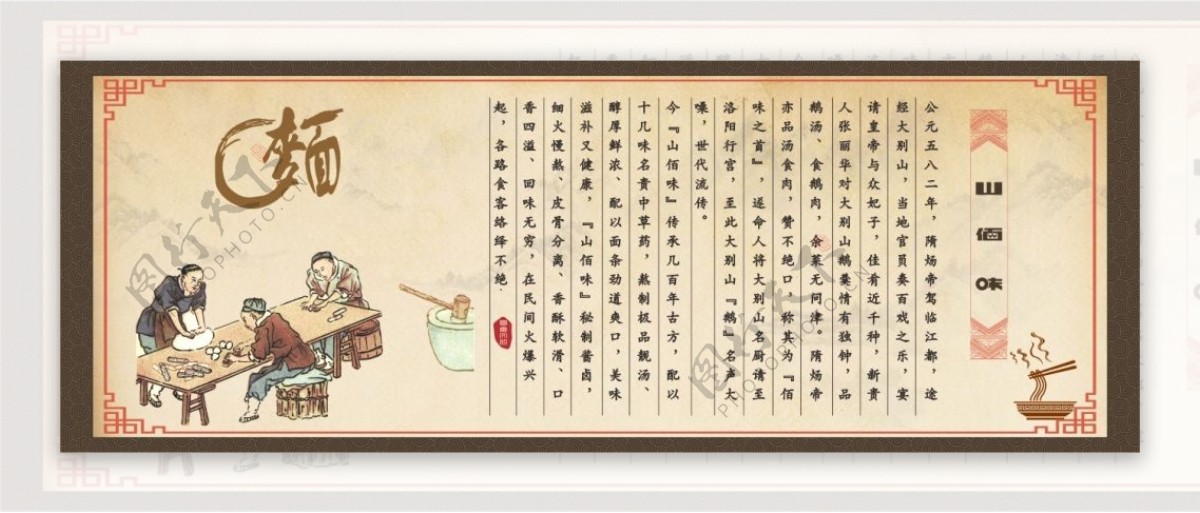 山佰味
公元五八二年，隋炀帝驾临江都，途
经大别山，当地官员奏百戏之乐，宴
请皇帝与众妃子，佳肴近千种，新贵
人张丽华对大别山鹅羹情有独钟，品
鹅汤、食鹅肉，余菜无问津。隋炀帝
亦品汤食肉，赞不绝口，称其为『佰
味之首』，遂命人将大别山主厨请至
洛阳行宫，至此大别山『鹅』名声大
噪，世代流传。
今『山佰味』传承几百年古方，配以
十几味名贵中草药，熬制极品靓汤、
醇厚鲜浓、配以面条劲道爽口，美味
滋补又健康，『山佰味』秘制酱卤，
细火慢熬、皮骨分离、香酥软滑、口
香四溢、回味无穷，在民间火爆兴
起，各路食客络绎不绝.
麵